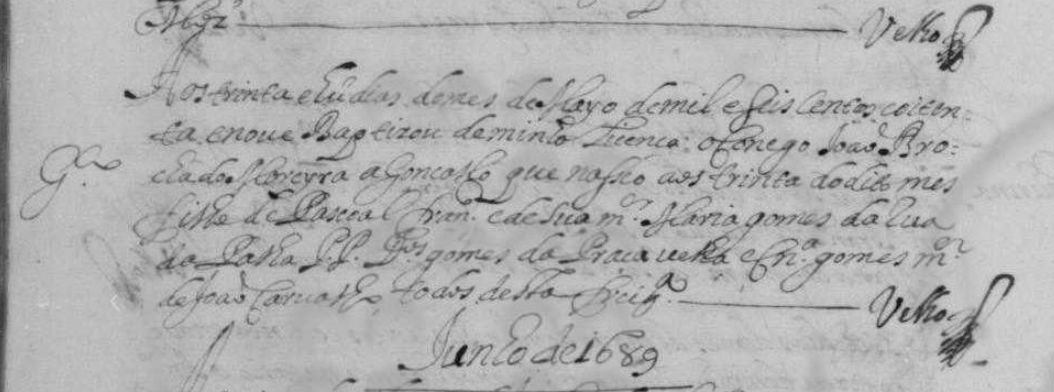 Velho
Aos trinta e hũ dias do mes de Mayo de mil e seis centos, e oiten=
ta, e nove Baptizou de minha licença o Conego João Bro=
chado Moreyra a Gonçalo que nasceo aos trinta do dito mes
G.lo
filho de Pascoal Fran.co e de sua m.er Maria gomes da Rua
da Palha P.P. gomes da Praça velha e gomes m.er
de João Carvalho todos desta Freig.a
Velho
Junho de 1689